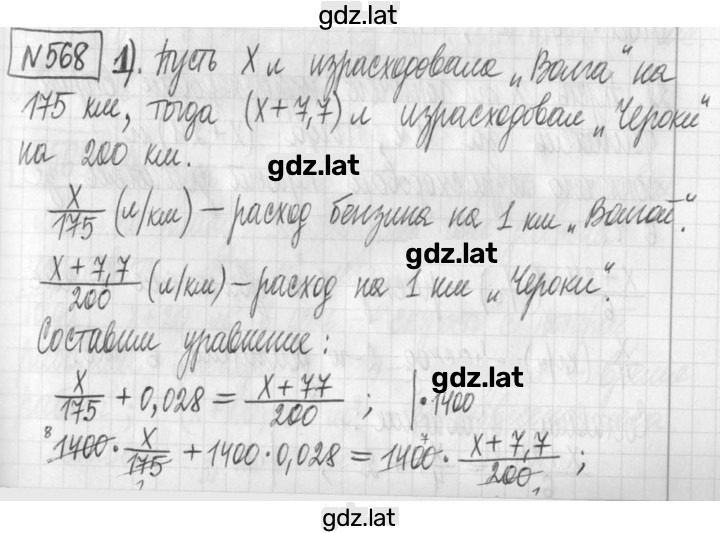 gdz.lat
N568 1). Пусть X л израсходовала „Волга“ на
175 км, тогда (X+7,7) л израсходовал „Чероки“
на 200 км.
gdz.lat
X/175 (л/км) – расход бензина на 1 км „Волгой“.
gdz.lat
X+7,7/200 (л/км) – расход на 1 км „Чероки“.
Составим уравнение:
gdz.lat
X/175 + 0,028 = X+77/200 ; |·1400
8 1400 · X/175 1 + 1400·0,028 = 1400 7 · X+7,7/200 1 ;
gdz.lat